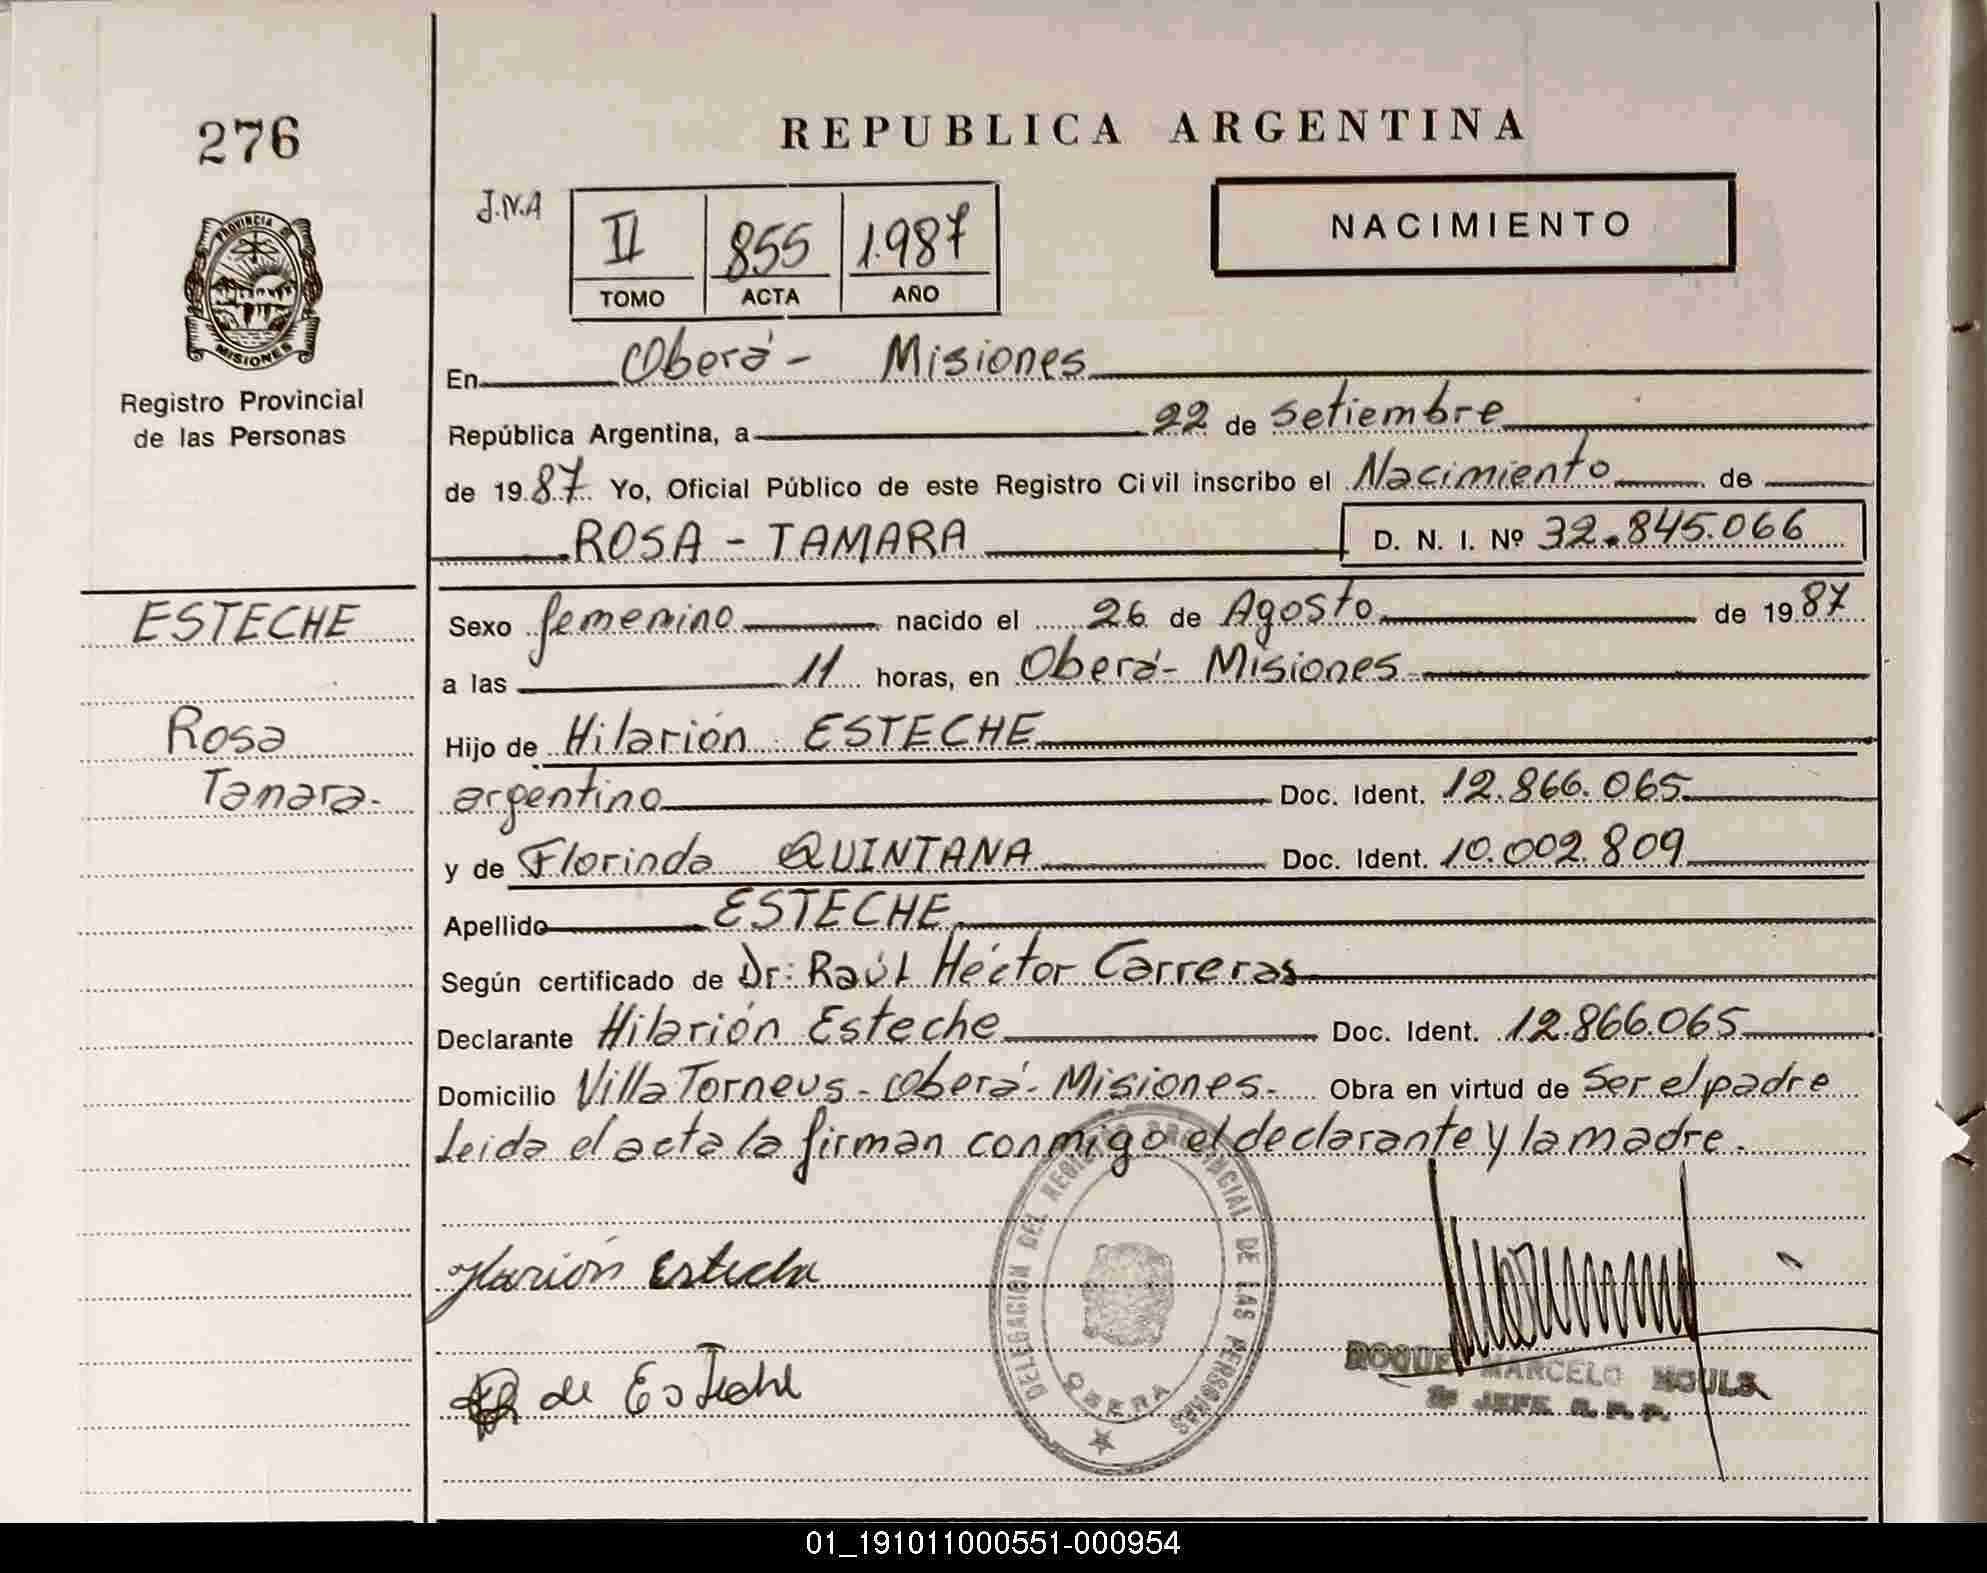 276
REPUBLICA ARGENTINA
J.N.A
II 855 1.987
TOMO ACTA AÑO
NACIMIENTO
PROVINCIA DE
MISIONES
Registro Provincial
de las Personas
En Oberá - Misiones
República Argentina, a 22 de Setiembre
de 1987 Yo, Oficial Público de este Registro Civil inscribo el Nacimiento de
ROSA - TAMARA D. N. I. Nº 32.845.066
ESTECHE
Rosa
Tamara-
Sexo femenino nacido el 26 de Agosto de 1987
a las 11 horas, en Oberá - Misiones
Hijo de Hilarión ESTECHE
argentino Doc. Ident. 12.866.065
y de Florinda QUINTANA Doc. Ident. 10.002.809
Apellido ESTECHE
Según certificado de Dr: Raúl Héctor Carreras
Declarante Hilarión Esteche Doc. Ident. 12.866.065
Domicilio Villa Torneus - Oberá - Misiones - Obra en virtud de Ser el padre
Leida el acta la firman conmigo el declarante y la madre.
DELEGACION DEL REGISTRO PROVINCIAL DE LAS PERSONAS
OBERA
Hilarión Esteche
de Esteche
ROQUE MARCELO
JEFE R. P. P.
01_191011000551-000954